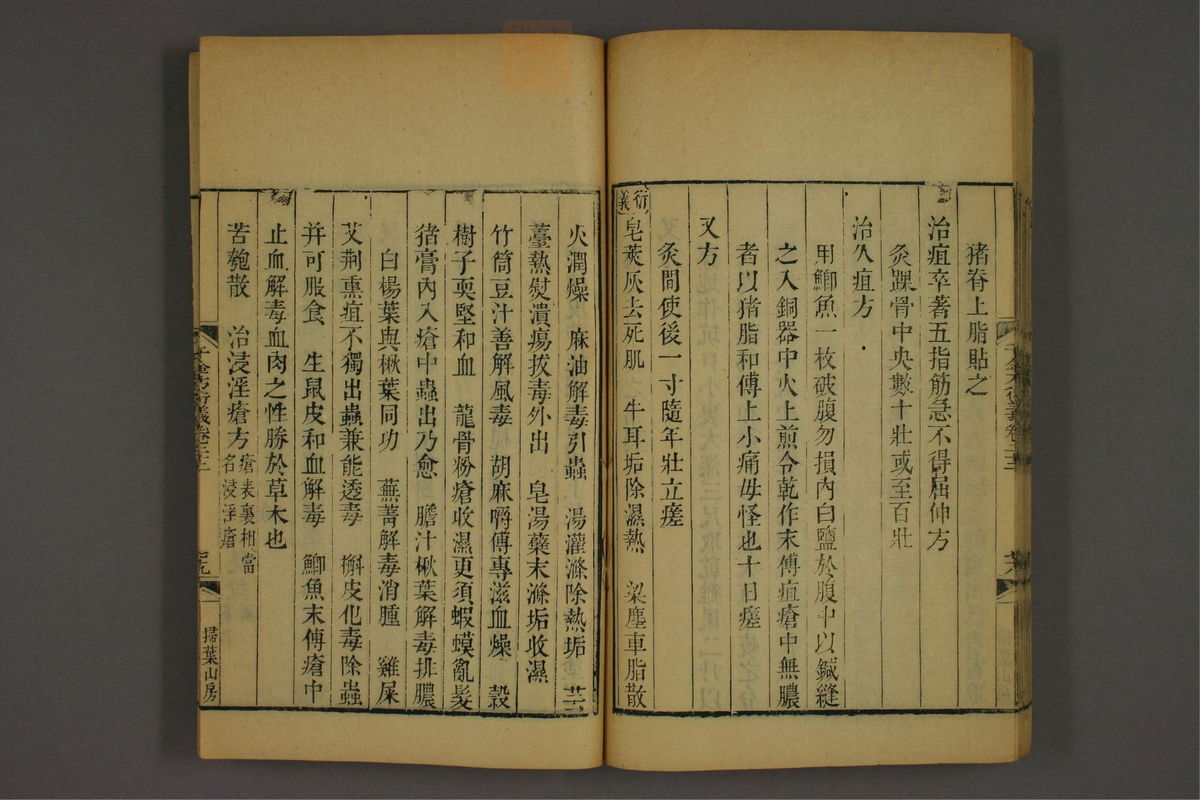 猪脊上脂貼之
治疽卒著五指筋急不得屈伸方
灸踝骨中央數十壯或至百壯
治久疽方
用鯽魚一枚破腹勿損內白鹽於腹中以鍼縫
之入銅器中火上煎令乾作末傅疽瘡中無膿
者以猪脂和傅上小痛毋怪也十日瘥
又方
灸間使後一寸隨年壯立瘥
衍義
皂莢灰去死肌 牛耳垢除濕熱 梁塵車脂散
火潤燥 麻油解毒引蟲 湯灌滌除熱垢 芸
薹熱熨潰瘍拔毒外出 皂湯藥末滌垢收濕
竹筒豆汁善解風毒 胡麻嚼傅專滋血燥 榖
樹子耎堅和血 龍骨粉瘡收濕更須蝦蟆亂髮
猪膏內入瘡中蟲出乃愈 膽汁楸葉解毒排膿
白楊葉與楸葉同功 蕪菁解毒消腫 雞屎
艾荆熏疽不獨出蟲兼能透毒 槲皮化毒除蟲
幷可服食 生鼠皮和血解毒 鯽魚末傅瘡中
止血解毒血肉之性勝於草木也
苦瓠散 治浸淫瘡方瘡表裏相當名浸淫瘡
千金方衍義卷二十二
掃葉山房